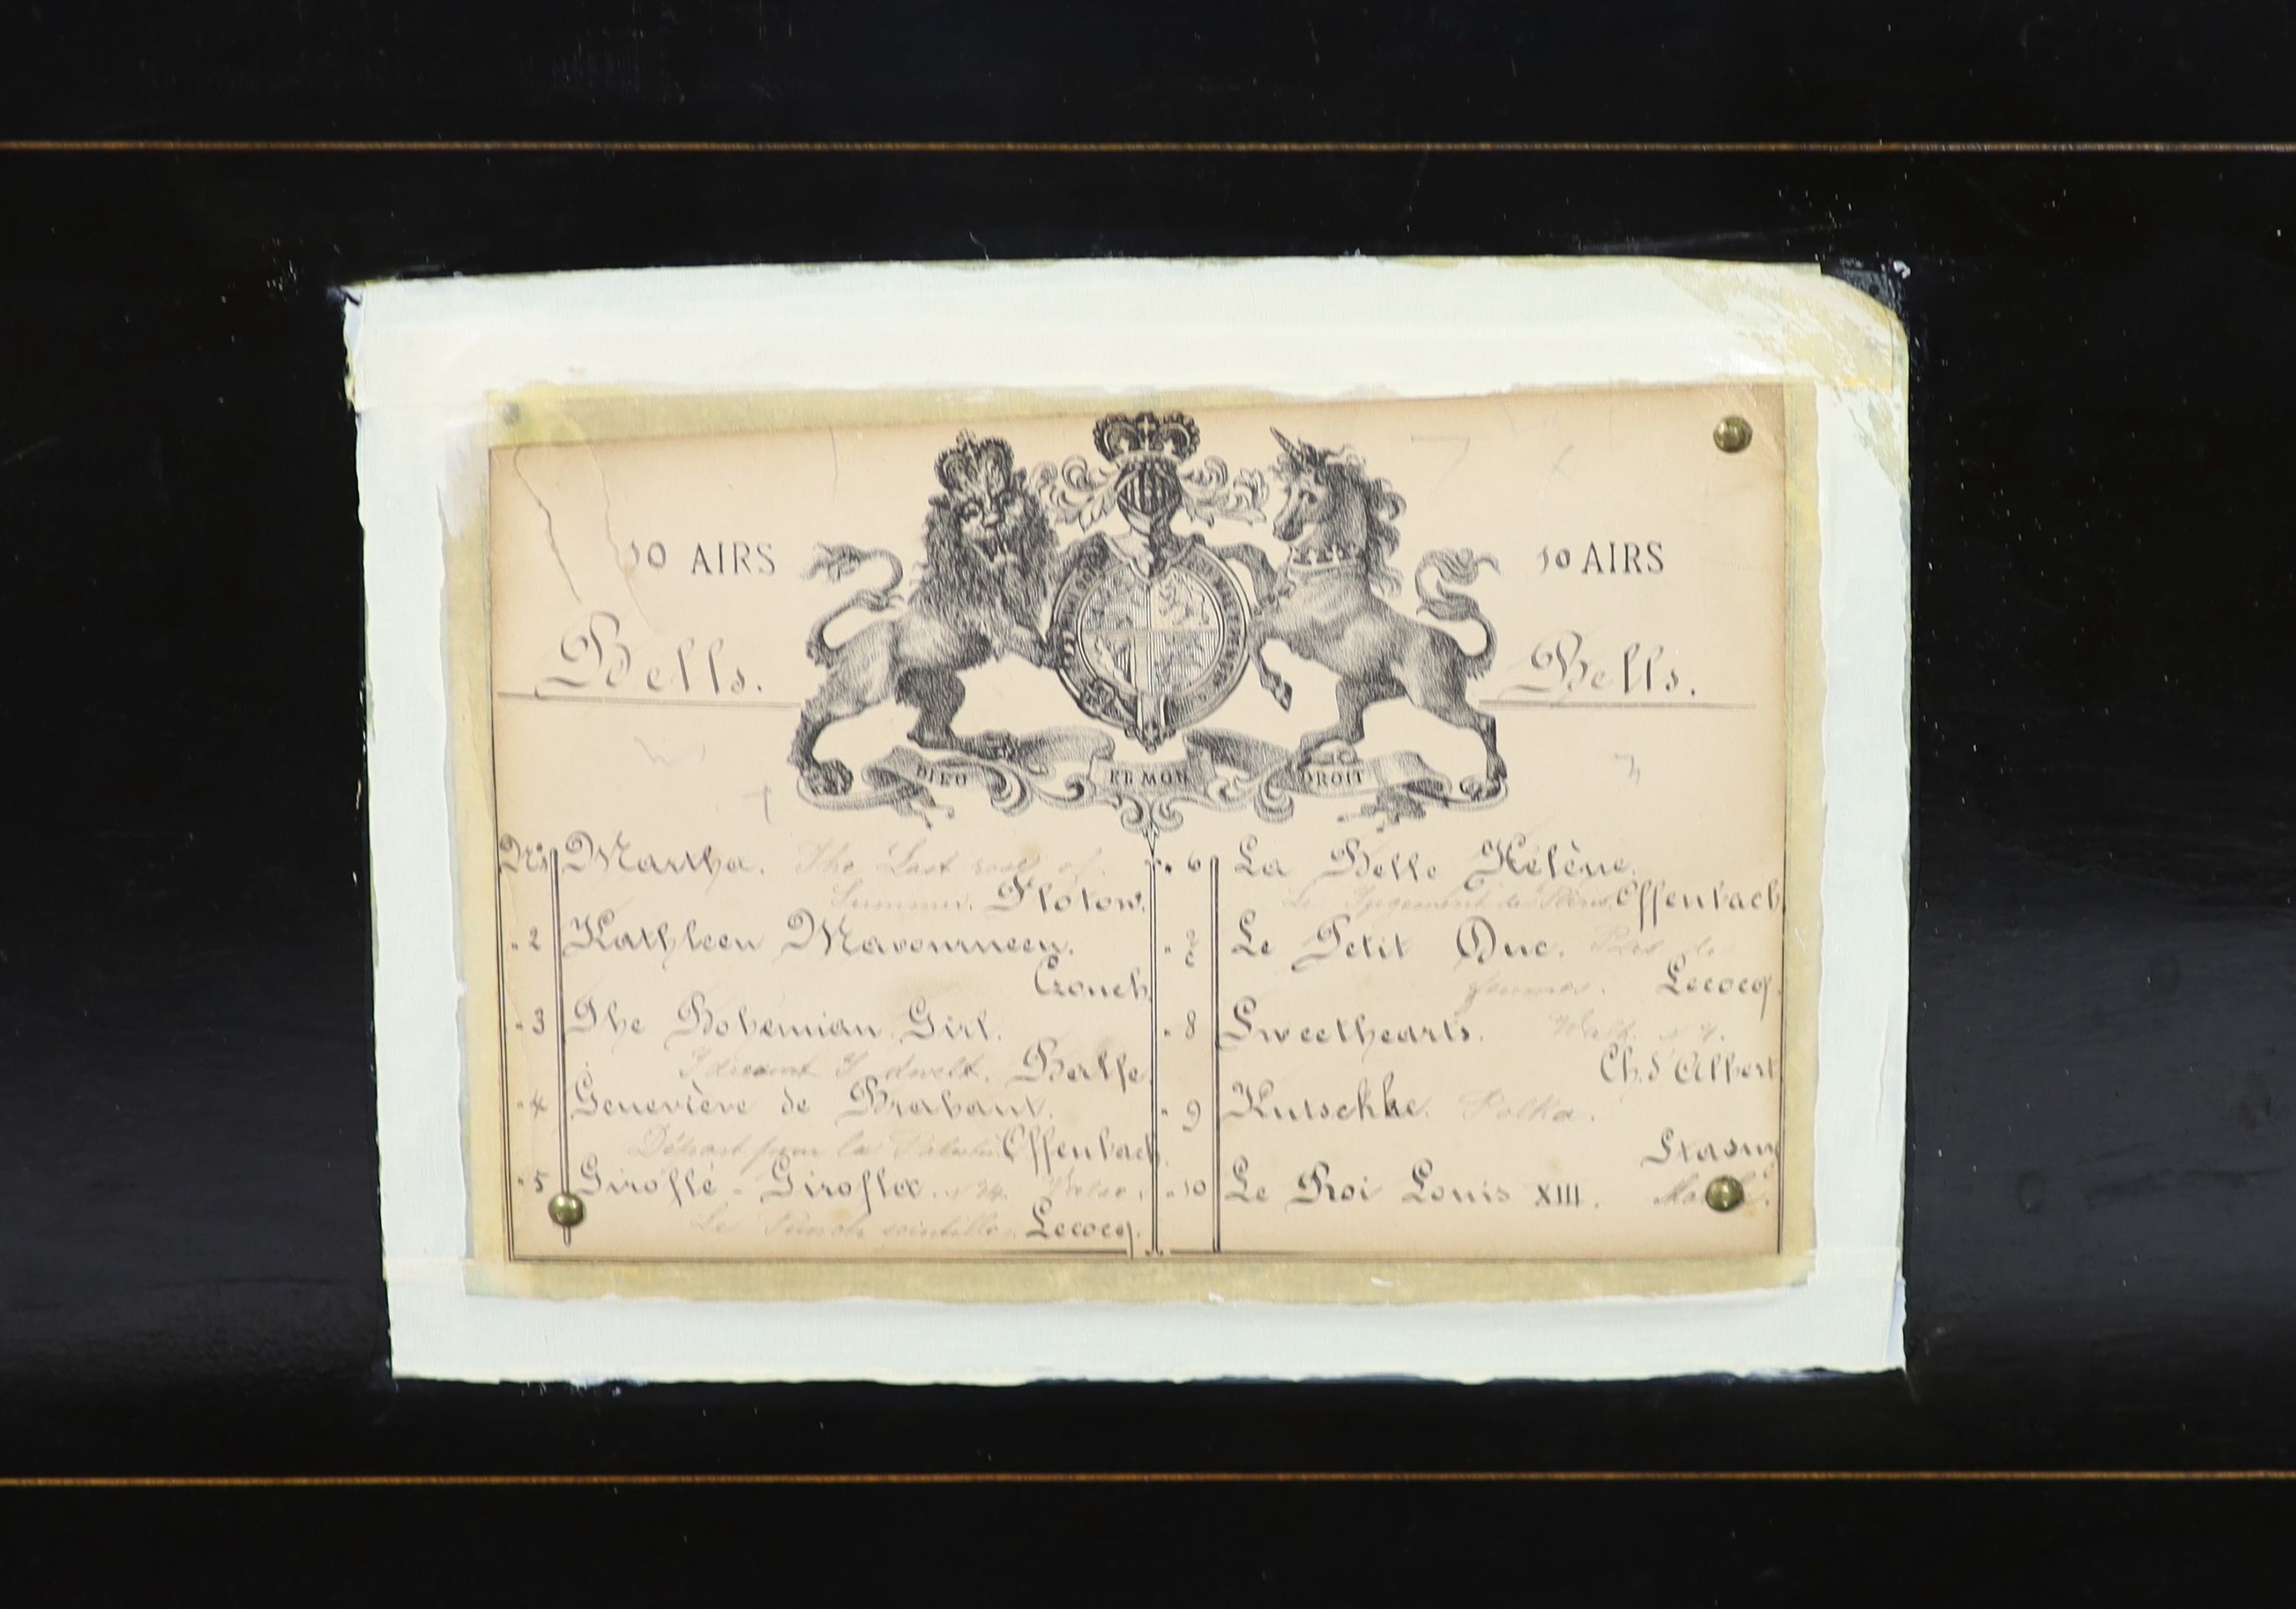 10 AIRS
10 AIRS
Bells.
Bells.
DIEU ET MON DROIT
No 1 Martha. The Last rose of
Summer. Flotow.
" 2 Kathleen Mavourneen.
Crouch.
" 3 The Bohemian Girl.
I dreamt I dwelt. Balfe.
" 4 Geneviève de Brabant.
Départ pour la Offenbach.
" 5 Giroflé - Girofla.
Le Punch scintille. Lecocq.
" 6 La Belle Hélène.
Le Jugement de Pâris. Offenbach
" 7 Le Petit Duc. Pas de
femmes. Lecocq.
" 8 Sweethearts. Waltz.
Ch. d'Albert
" 9 Kutschke. Polka.
" 10 Le Roi Louis XIII.